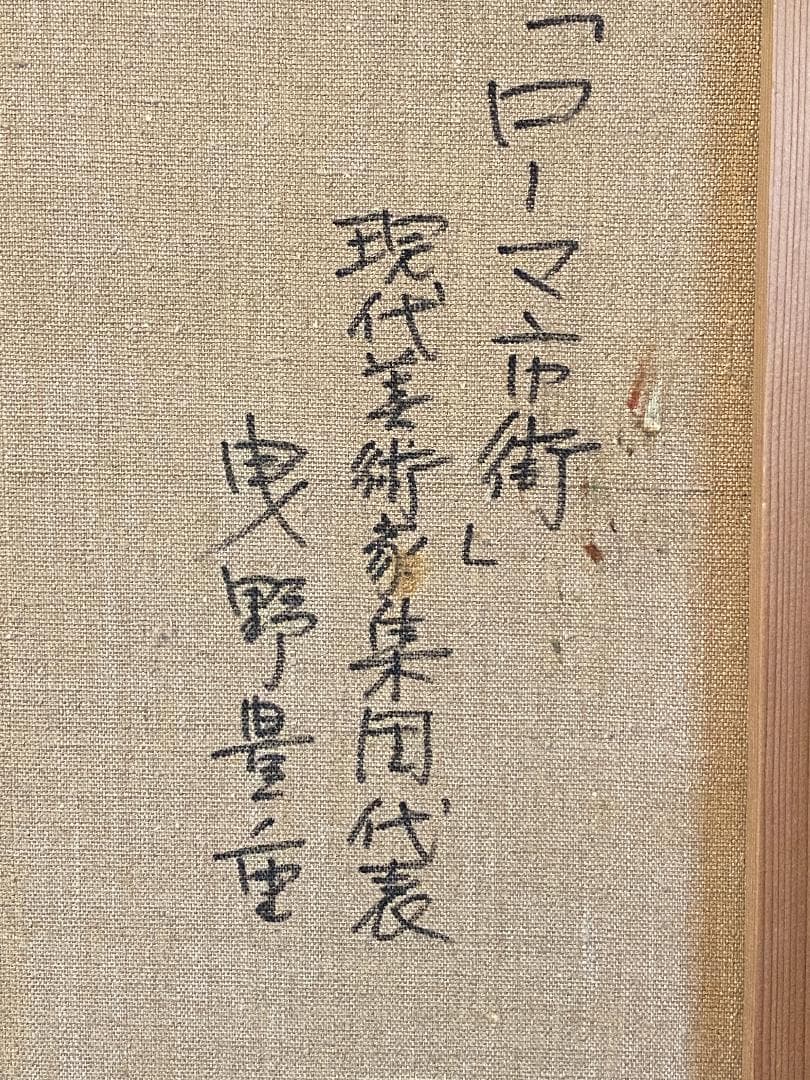 「ローマ市街」
現代美術家集団代表
曳野豊重